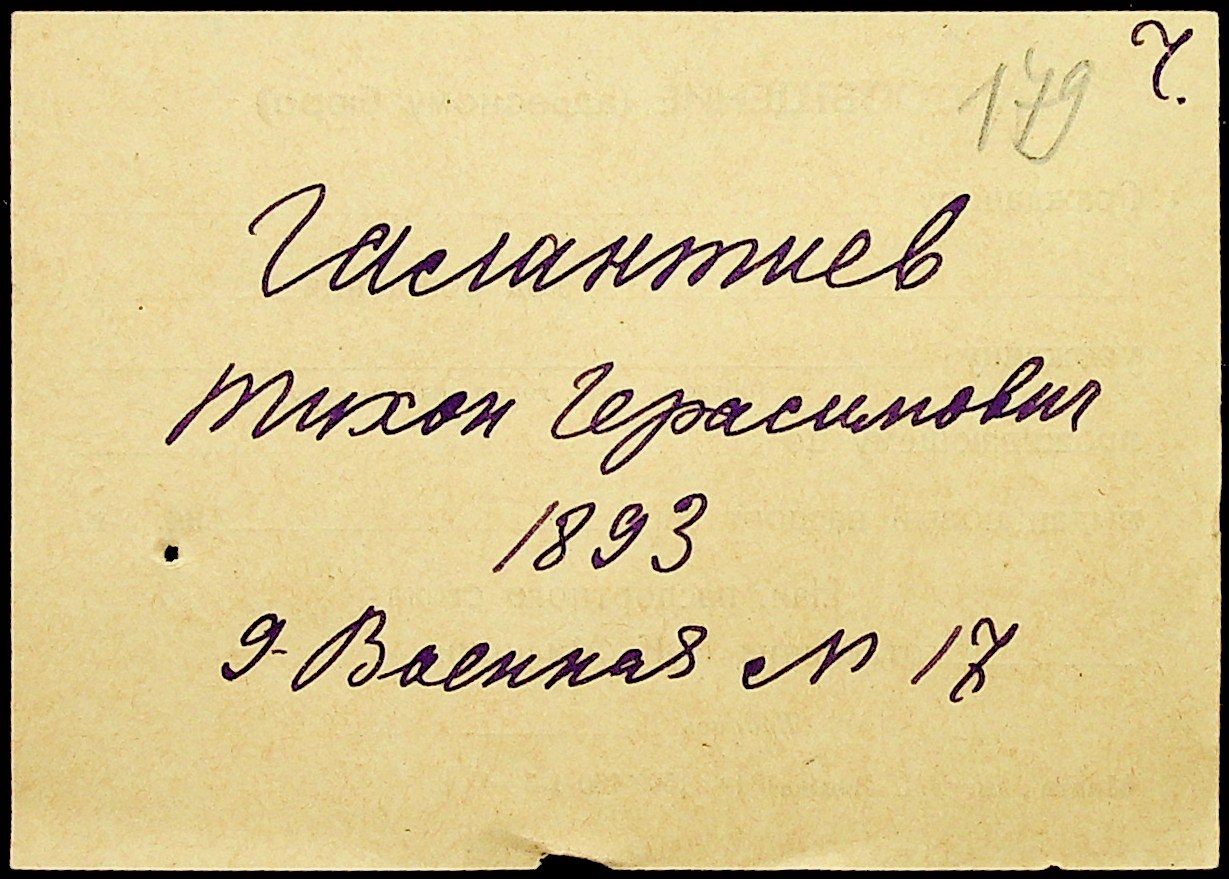 Ч.
179
Галантиев
Тихон Герасимович
1893
9-Военная № 17